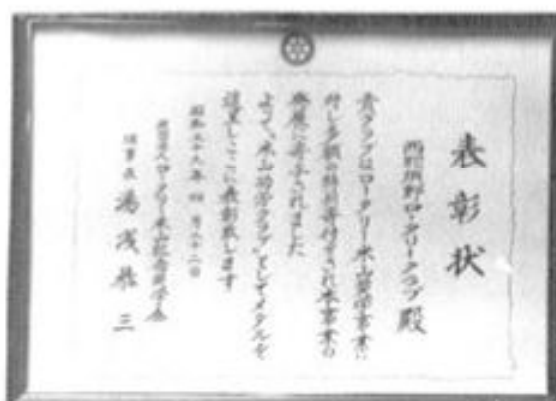 表彰状
西那須野ロータリークラブ殿
貴クラブはロータリー米山奨学事業に
対し多額の特別寄付をされ本事業の
発展に寄与されました
よって米山功労クラブとしてメダルを
贈呈しここに表彰致します
昭和五十九年四月二十二日
財団法人ロータリー米山記念奨学会
理事長 湯浅恭三